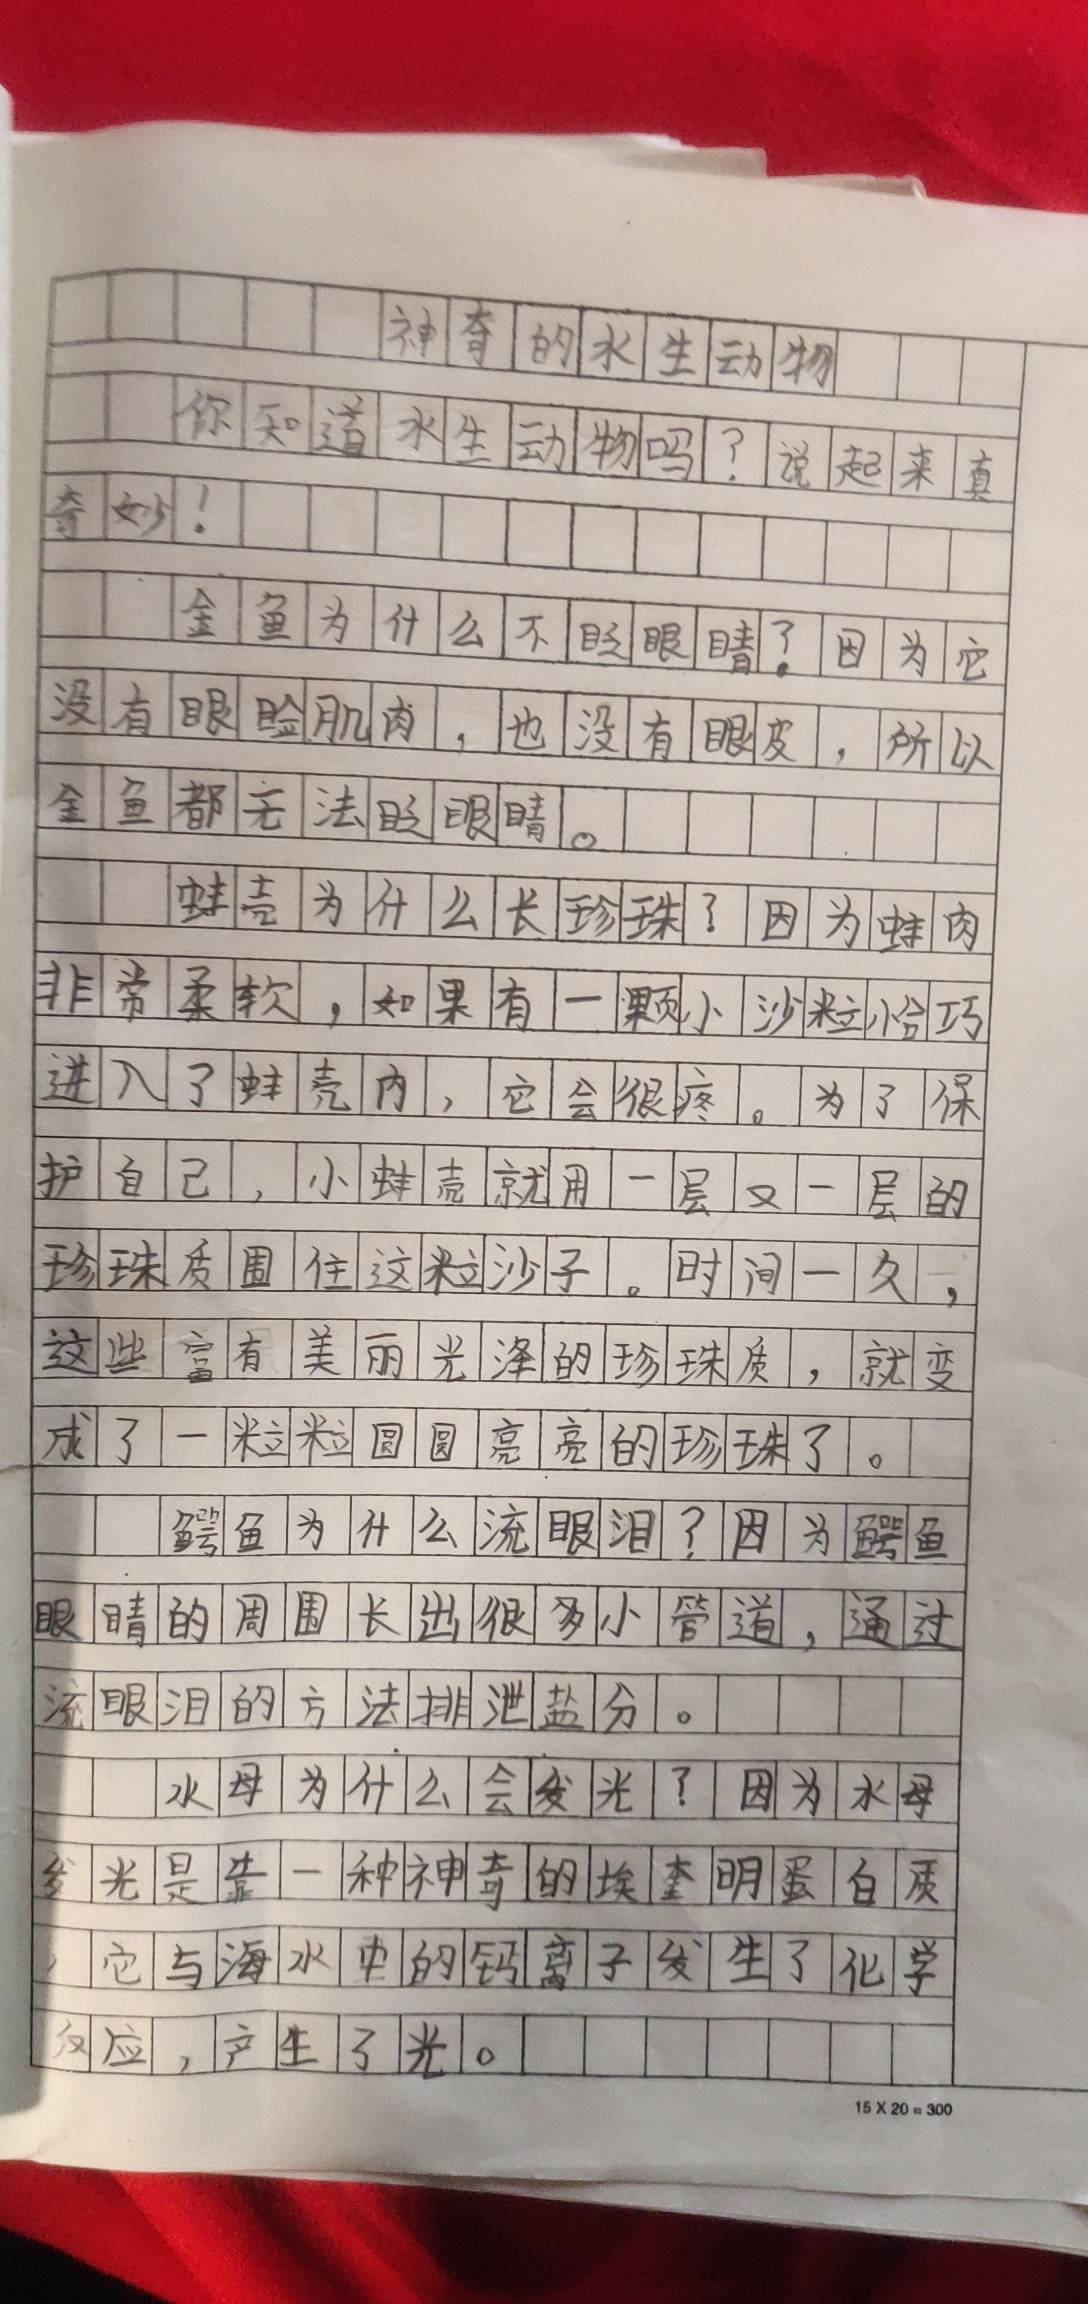 神奇的水生动物
你知道水生动物吗？说起来真
奇妙！
金鱼为什么不眨眼睛？因为它
没有眼睑肌肉，也没有眼皮，所以
金鱼都无法眨眼睛。
蚌壳为什么长珍珠？因为蚌肉
非常柔软，如果有一颗小沙粒恰巧
进入了蚌壳内，它会很疼。为了保
护自己，小蚌壳就用一层又一层的
珍珠质围住这粒沙子。时间一久，
这些富有美丽光泽的珍珠质，就变
成了一粒粒圆圆亮亮的珍珠了。
鳄鱼为什么流眼泪？因为鳄鱼
眼睛的周围长出很多小管道，通过
流眼泪的方法排泄盐分。
水母为什么会发光？因为水母
发光是靠一种神奇的埃奎明蛋白质
，它与海水中的钙离子发生了化学
反应，产生了光。
15 X 20 = 300